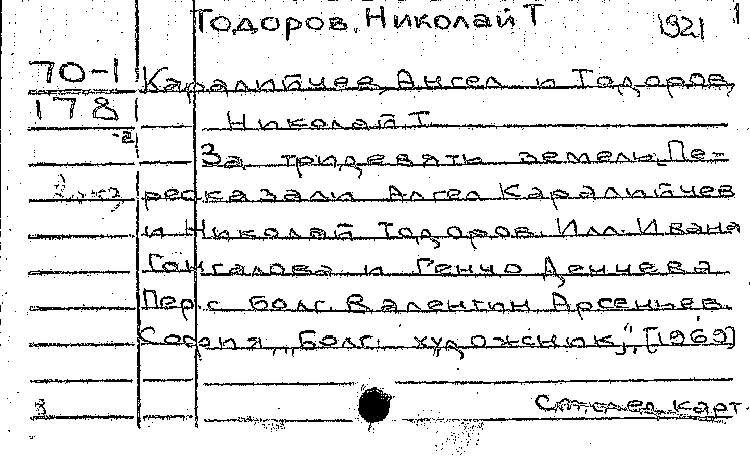 Тодоров, Николай Т 1921 1
70-1 Каралийчев, Ангел и Тодоров,
178 Николай Т.
-2
За тридевять земель. Пе-
ресказали Ангел Каралийчев
и Николай Тодоров. Илл. Ивана
Гонгалова и Генчо Денчева.
Пер. с болг. Валентин Арсеньев.
София, „Болг. художник", [1969]
См. след. карт.